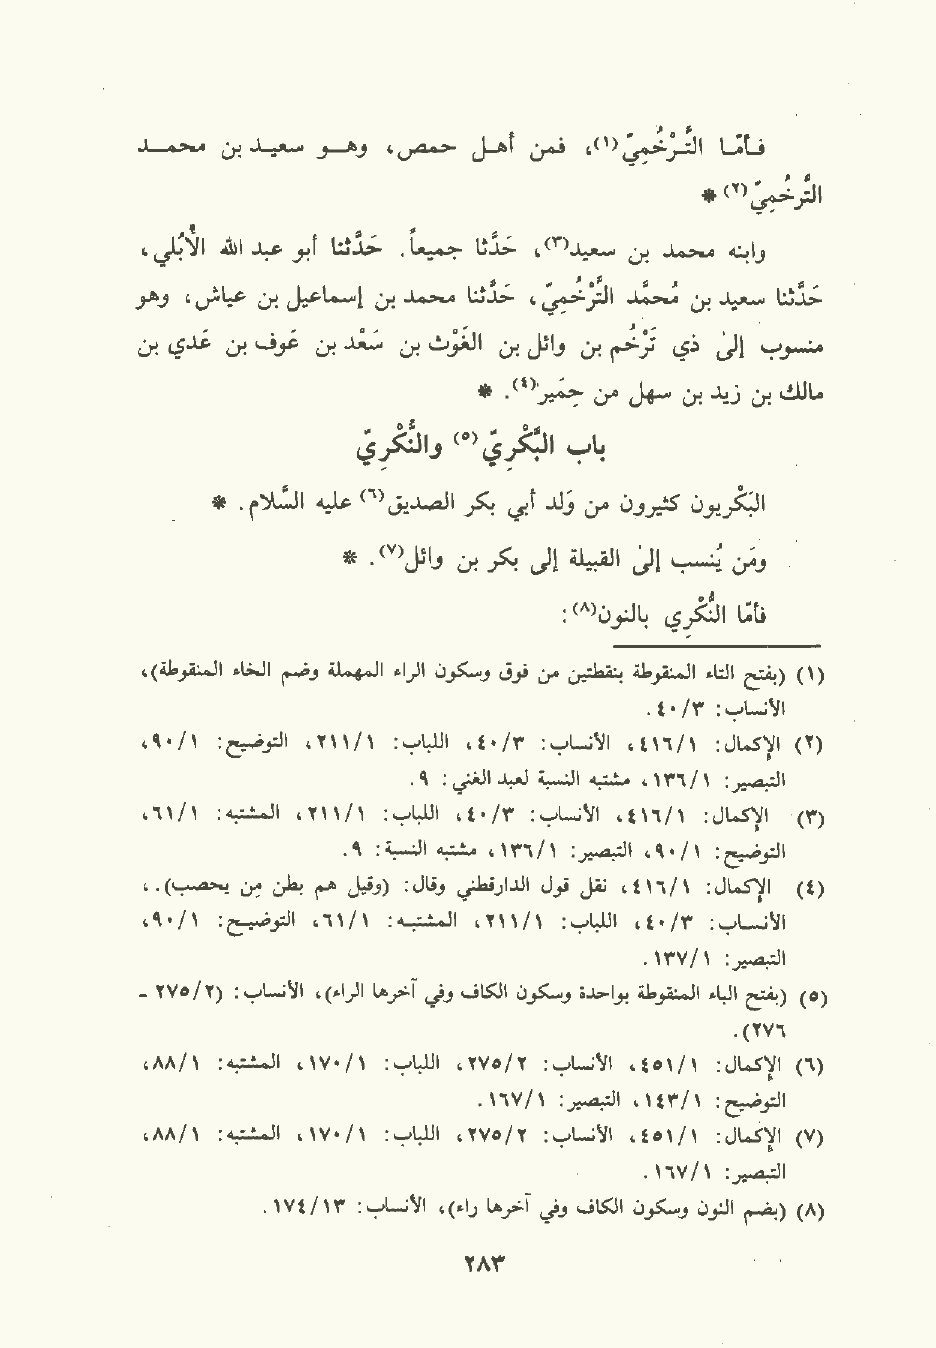 فأمّا التَّرْخُمِيّ(١)، فمن أهل حمص، وهو سعيد بن محمد
التَّرخُمِيّ(٢) *
وابنه محمد بن سعيد(٣)، حَدَّثنا جميعاً. حَدَّثنا أبو عبد الله الأُبُلي،
حَدَّثنا سعيد بن مُحمَّد التَّرْخُمِيّ، حَدَّثنا محمد بن إسماعيل بن عياش، وهو
منسوب إلىٰ ذي تَرْخُم بن وائل بن الغَوْث بن سَعْد بن عَوف بن عَدي بن
مالك بن زيد بن سهل من حِمَير(٤). *
باب البَّكْرِيّ(٥) والنُّكْرِيّ
البَكْريون كثيرون من وَلد أبي بكر الصديق(٦) عليه السَّلام. *
ومَن يُنسب إلىٰ القبيلة إلى بكر بن وائل(٧). *
فأمّا النُّكْرِي بالنون(٨):
(١) (بفتح التاء المنقوطة بنقطتين من فوق وسكون الراء المهملة وضم الخاء المنقوطة)،
الأنساب: ٤٠/٣.
(٢) الإكمال: ٤١٦/١، الأنساب: ٤٠/٣، اللباب: ٢١١/١، التوضيح: ٩٠/١،
التبصير: ١٣٦/١، مشتبه النسبة لعبد الغني: ٩.
(٣) الإكمال: ٤١٦/١، الأنساب: ٤٠/٣، اللباب: ٢١١/١، المشتبه: ٦١/١،
التوضيح: ٩٠/١، التبصير: ١٣٦/١، مشتبه النسبة: ٩.
(٤) الإكمال: ٤١٦/١، نقل قول الدارقطني وقال: (وقيل هم بطن مِن يحصب).،
الأنساب: ٤٠/٣، اللباب: ٢١١/١، المشتبه: ٦١/١، التوضيح: ٩٠/١،
التبصير: ١٣٧/١.
(٥) (بفتح الباء المنقوطة بواحدة وسكون الكاف وفي آخرها الراء)، الأنساب: (٢٧٥/٢ -
٢٧٦).
(٦) الإكمال: ٤٥١/١، الأنساب: ٢٧٥/٢، اللباب: ١٧٠/١، المشتبه: ٨٨/١،
التوضيح: ١٤٣/١، التبصير: ١٦٧/١.
(٧) الإكمال: ٤٥١/١، الأنساب: ٢٧٥/٢، اللباب: ١٧٠/١، المشتبه: ٨٨/١،
التبصير: ١٦٧/١.
(٨) (بضم النون وسكون الكاف وفي آخرها راء)، الأنساب: ١٧٤/١٣.
٢٨٣